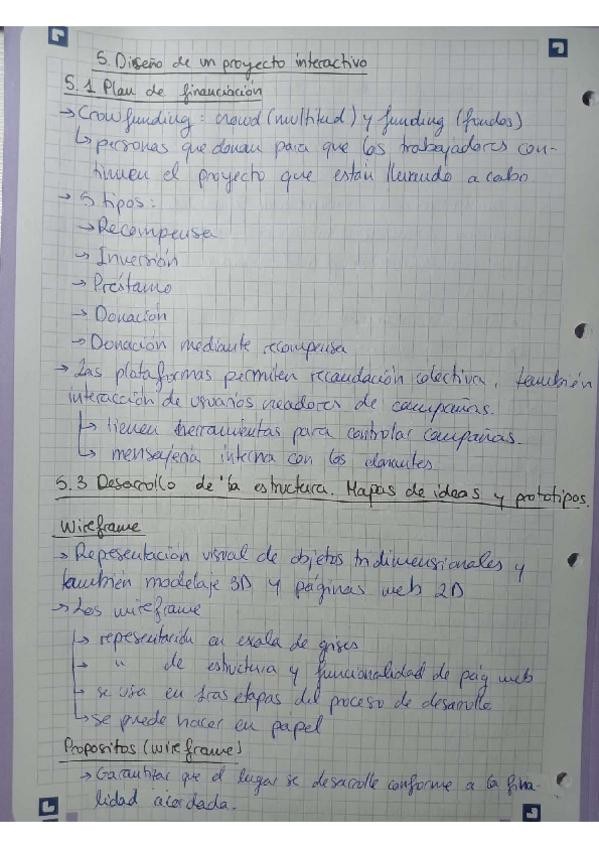 5. Diseño de un proyecto interactivo
5.1 Plan de financiación
→ Crowfunding: crowd (multitud) y funding (fondos)
↳ personas que donan para que los trabajadores con-
tinuen el proyecto que están llevando a cabo
→ 5 tipos:
→ Recompensa
→ Inversión
→ Préstamo
→ Donación
→ Donación mediante recompensa
→ Las plataformas permiten recaudación colectiva, también
interacción de usuarios creadores de campañas.
↳ tienen herramientas para controlar campañas.
↳ mensajería interna con los donantes
5.3 Desarrollo de la estructura. Mapas de ideas y prototipos.
Wireframe
→ Representación visual de objetos tridimensionales y
también modelaje 3D y páginas web 2D
→ Los wireframe
↳ representación en escala de grises
↳ " de estructura y funcionalidad de pág web
↳ se usa en las etapas del proceso de desarrollo
↳ se puede hacer en papel
Propositos (wireframe)
→ Garantizar que el lugar se desarrolle conforme a la fina-
lidad acordada.